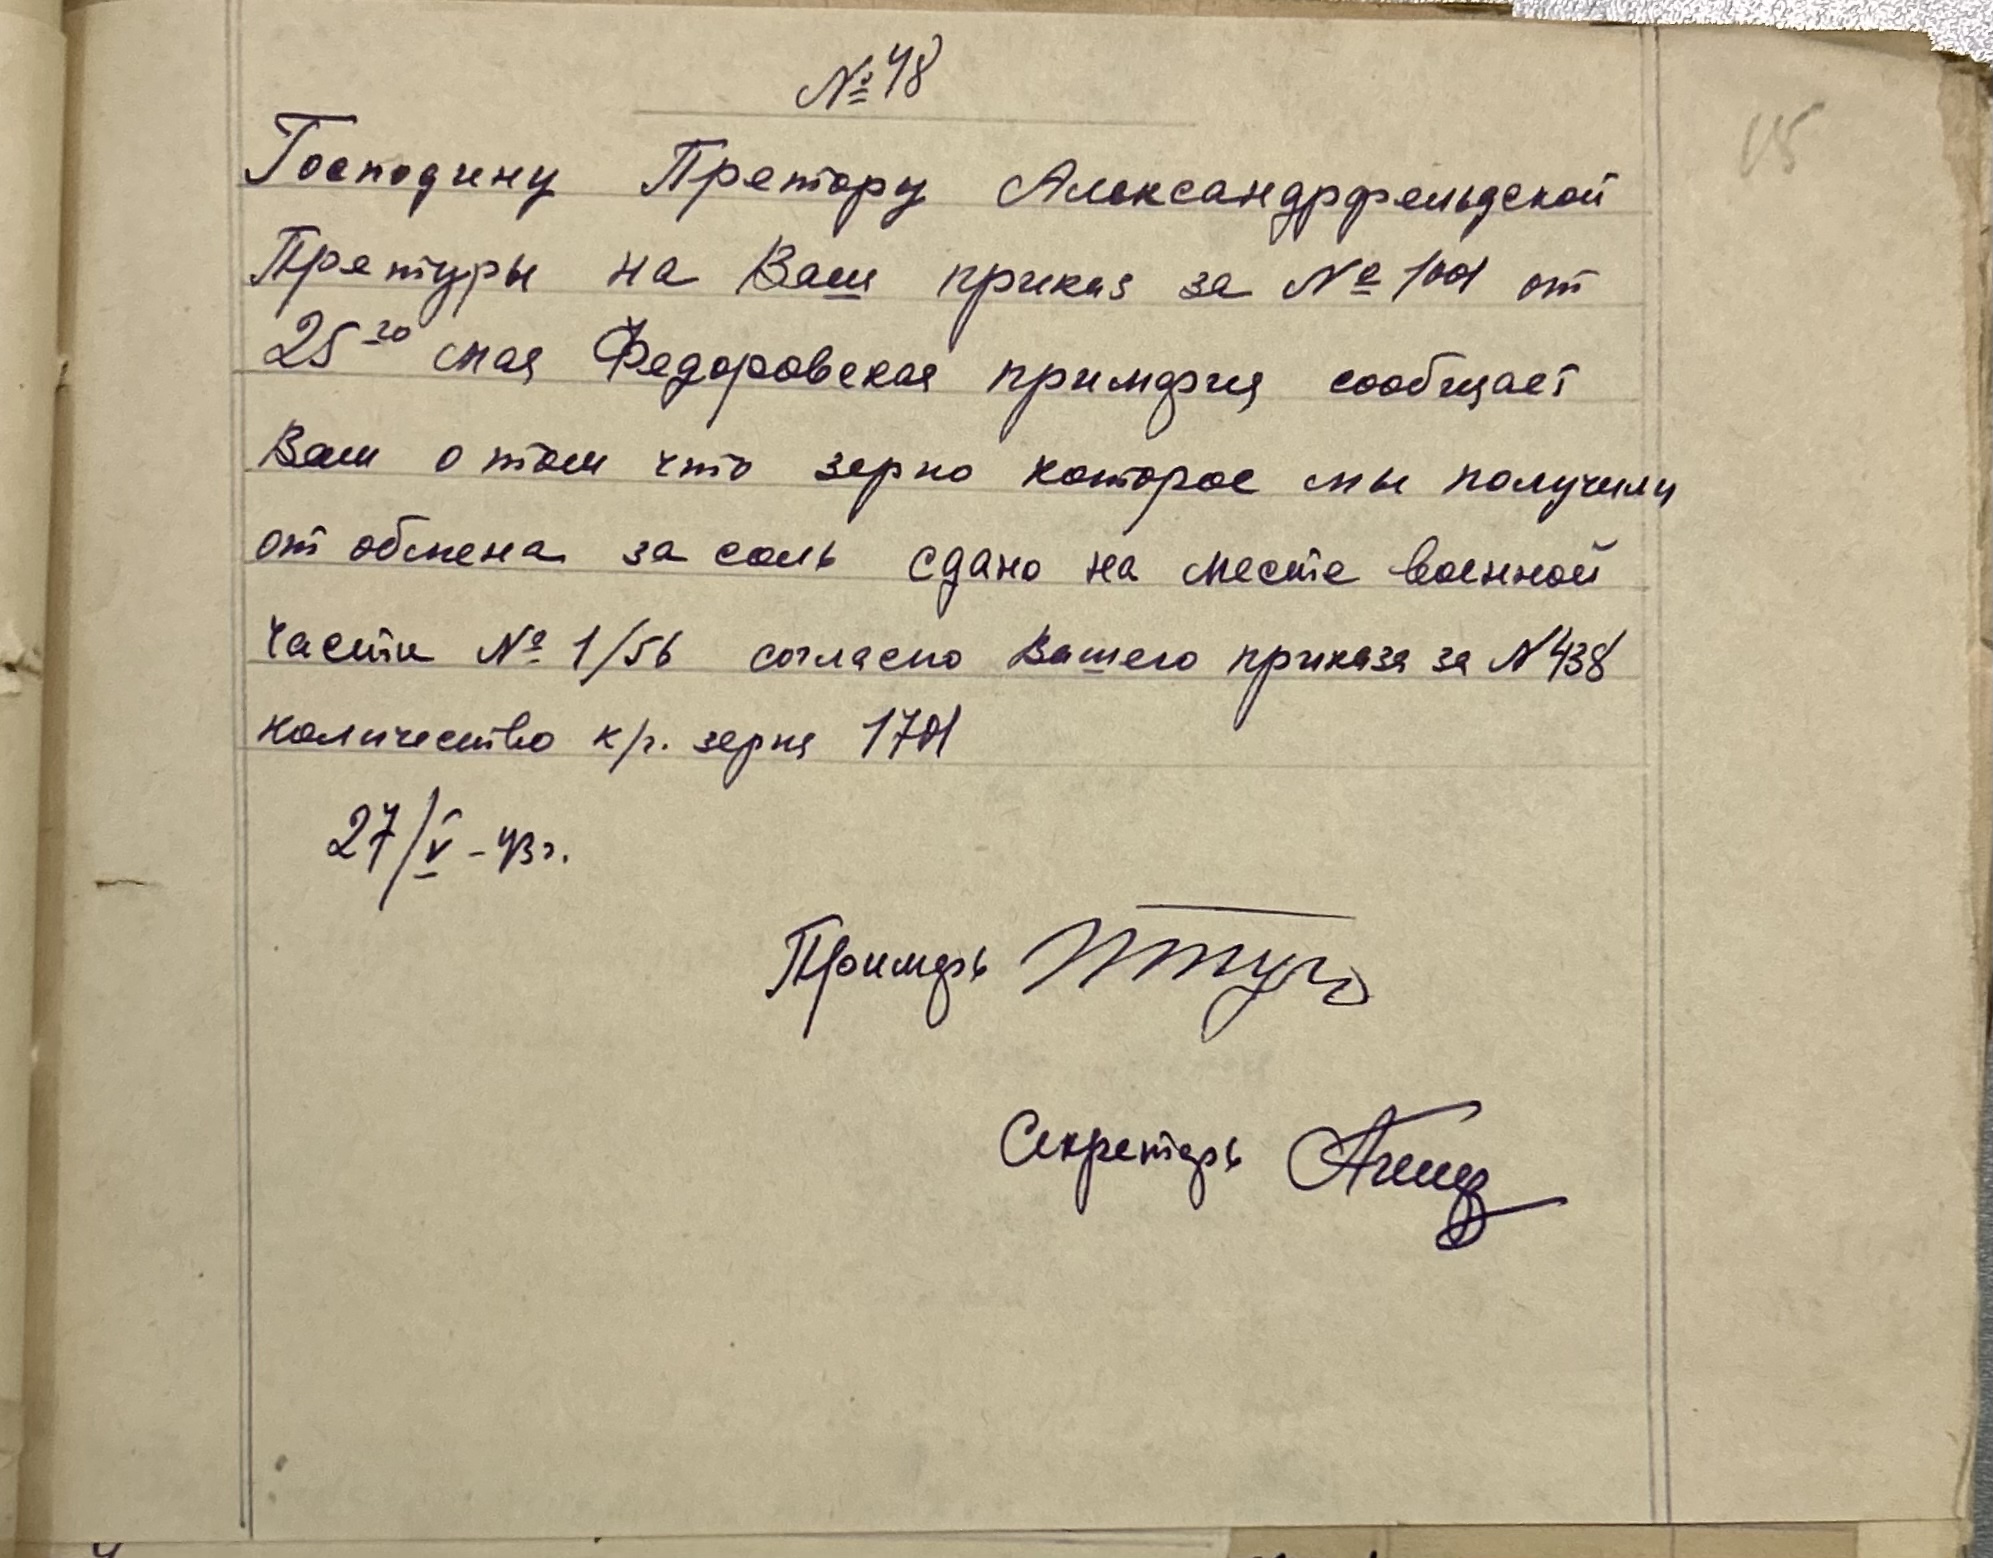 № 48
Господину Претору Александрфельдской
Претуры на Ваш приказ за № 1001 от
25го мая Федоровская примария сообщает
Вам о том что зерно которое мы получили
от обмена за соль сдано на месте военной
части № 1/56 согласно Вашего приказа за N 438
количество к/г. зерна 1701
27/V - 43 г.
Примарь
Секретарь